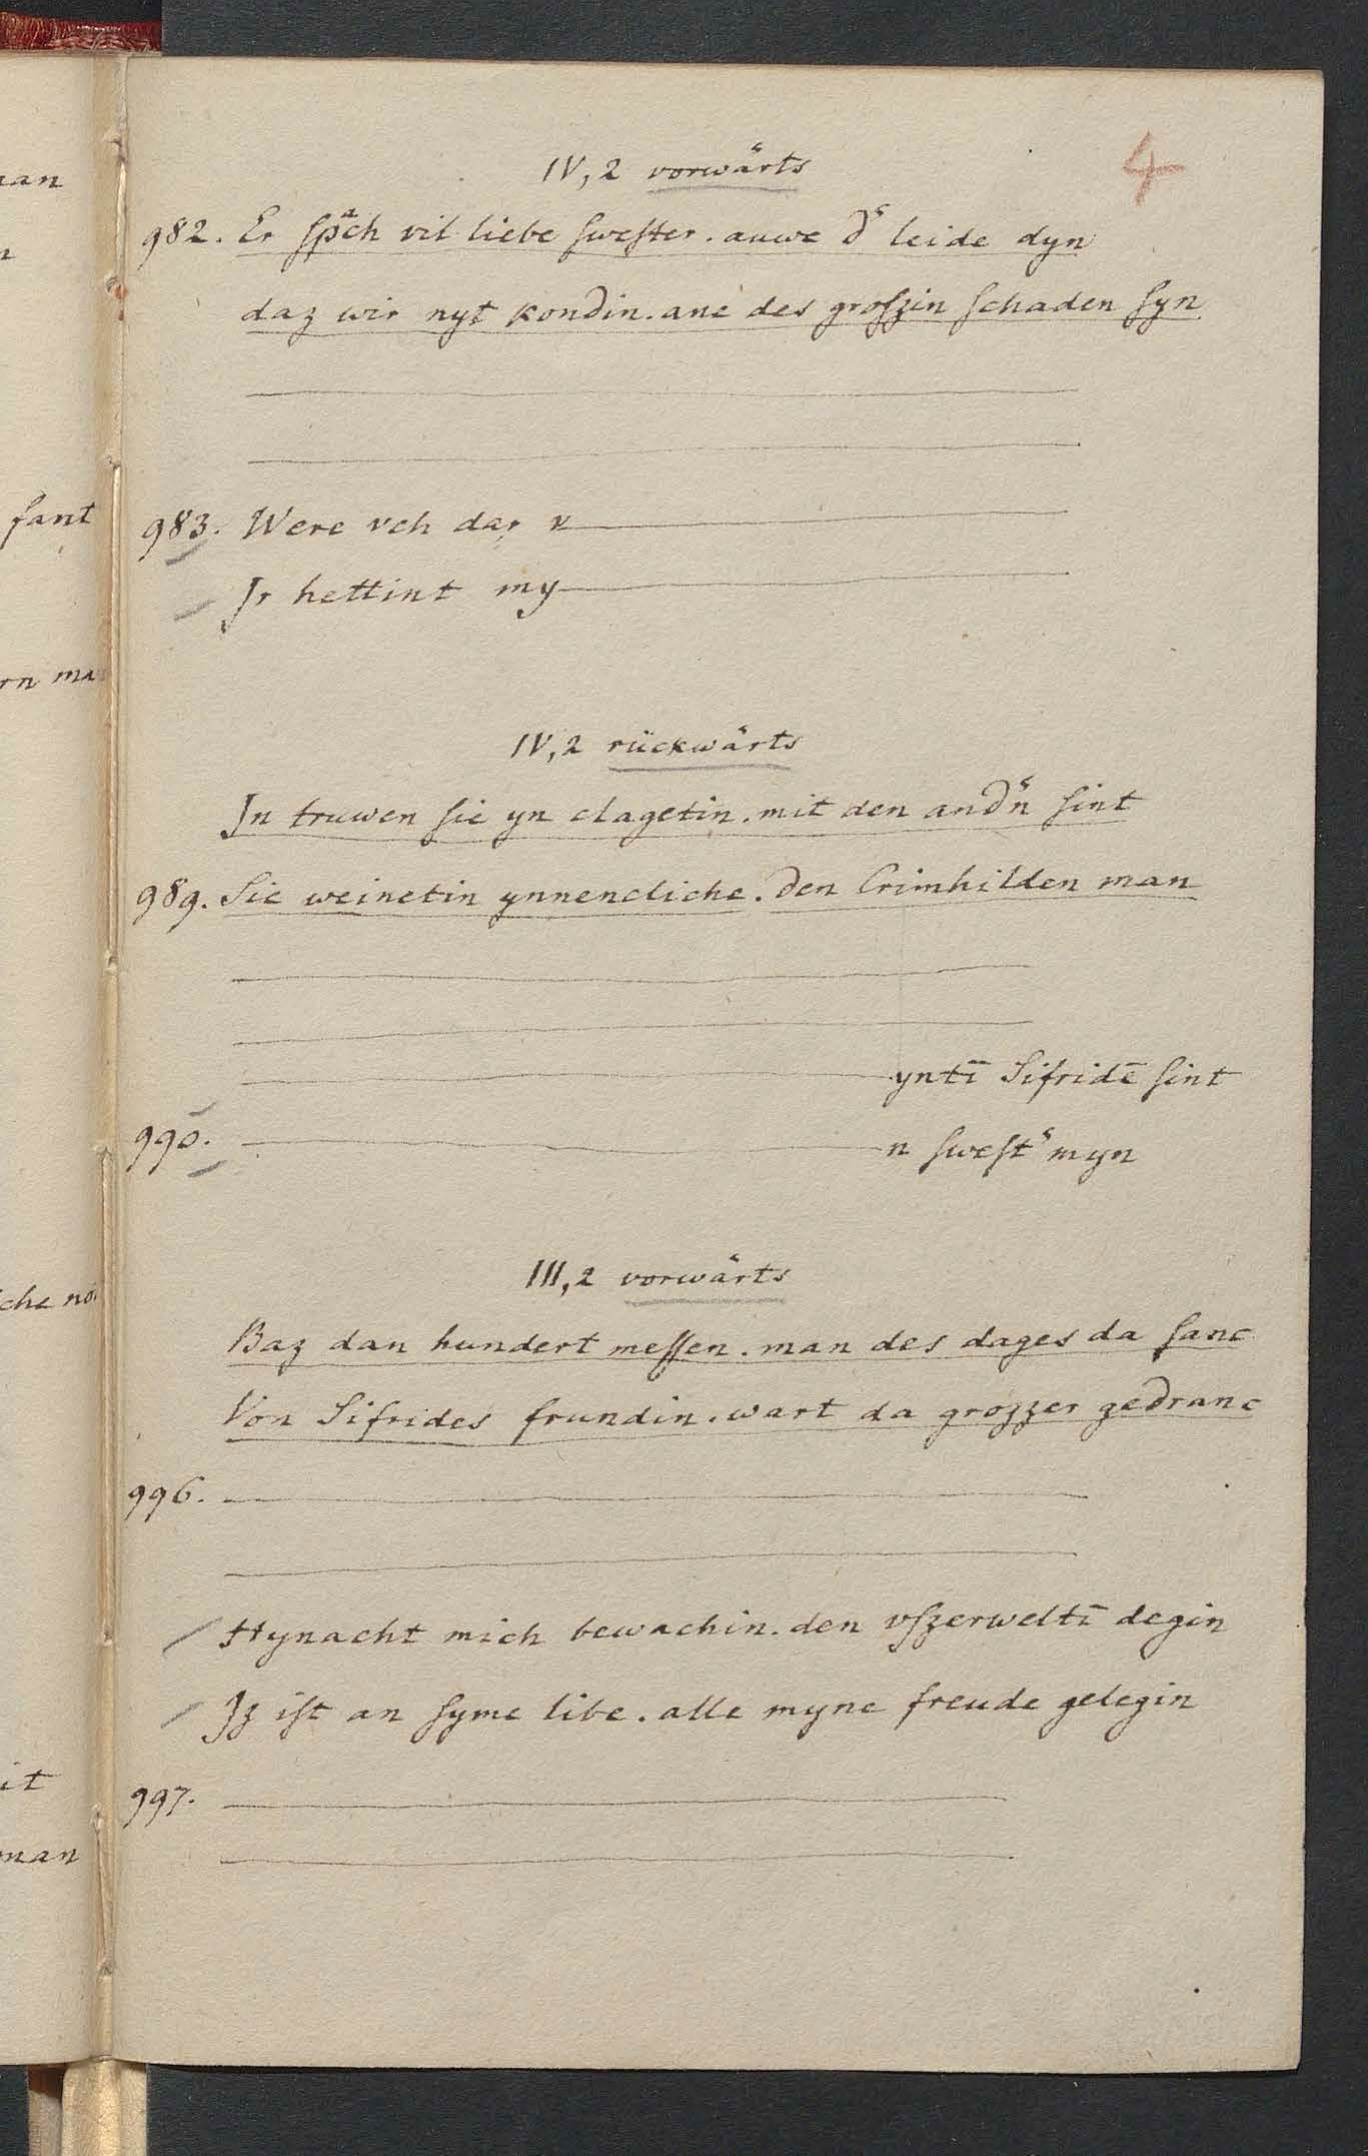 4
IV, 2 vorwärts
982. Er ſpᵃch vil liebe ſweſter. auwe d͛ leide dyn
daz wir nyt kondin. ane des groſzin ſchaden ſyn
983. Were vch dar v
Jr hettint my
IV, 2 rückwärts
Jn truwen ſie yn clagetin. mit den and͛n ſint
989. Sie weinetin ynnencliche. den Crimhilden man
yntī Sifridē ſint
990. n ſweſt͛ myn
III, 2 vorwärts
Baz dan hundert meſſen. man des dages da ſanc
Von Sifrides frundin. wart da grozzer gedranc
996.
Hynacht mich bewachin. den vſzerweltī degin
Jz iſt an ſyme libe. alle myne freude gelegin
997.
man
ſant
rn ma
che no
it
man